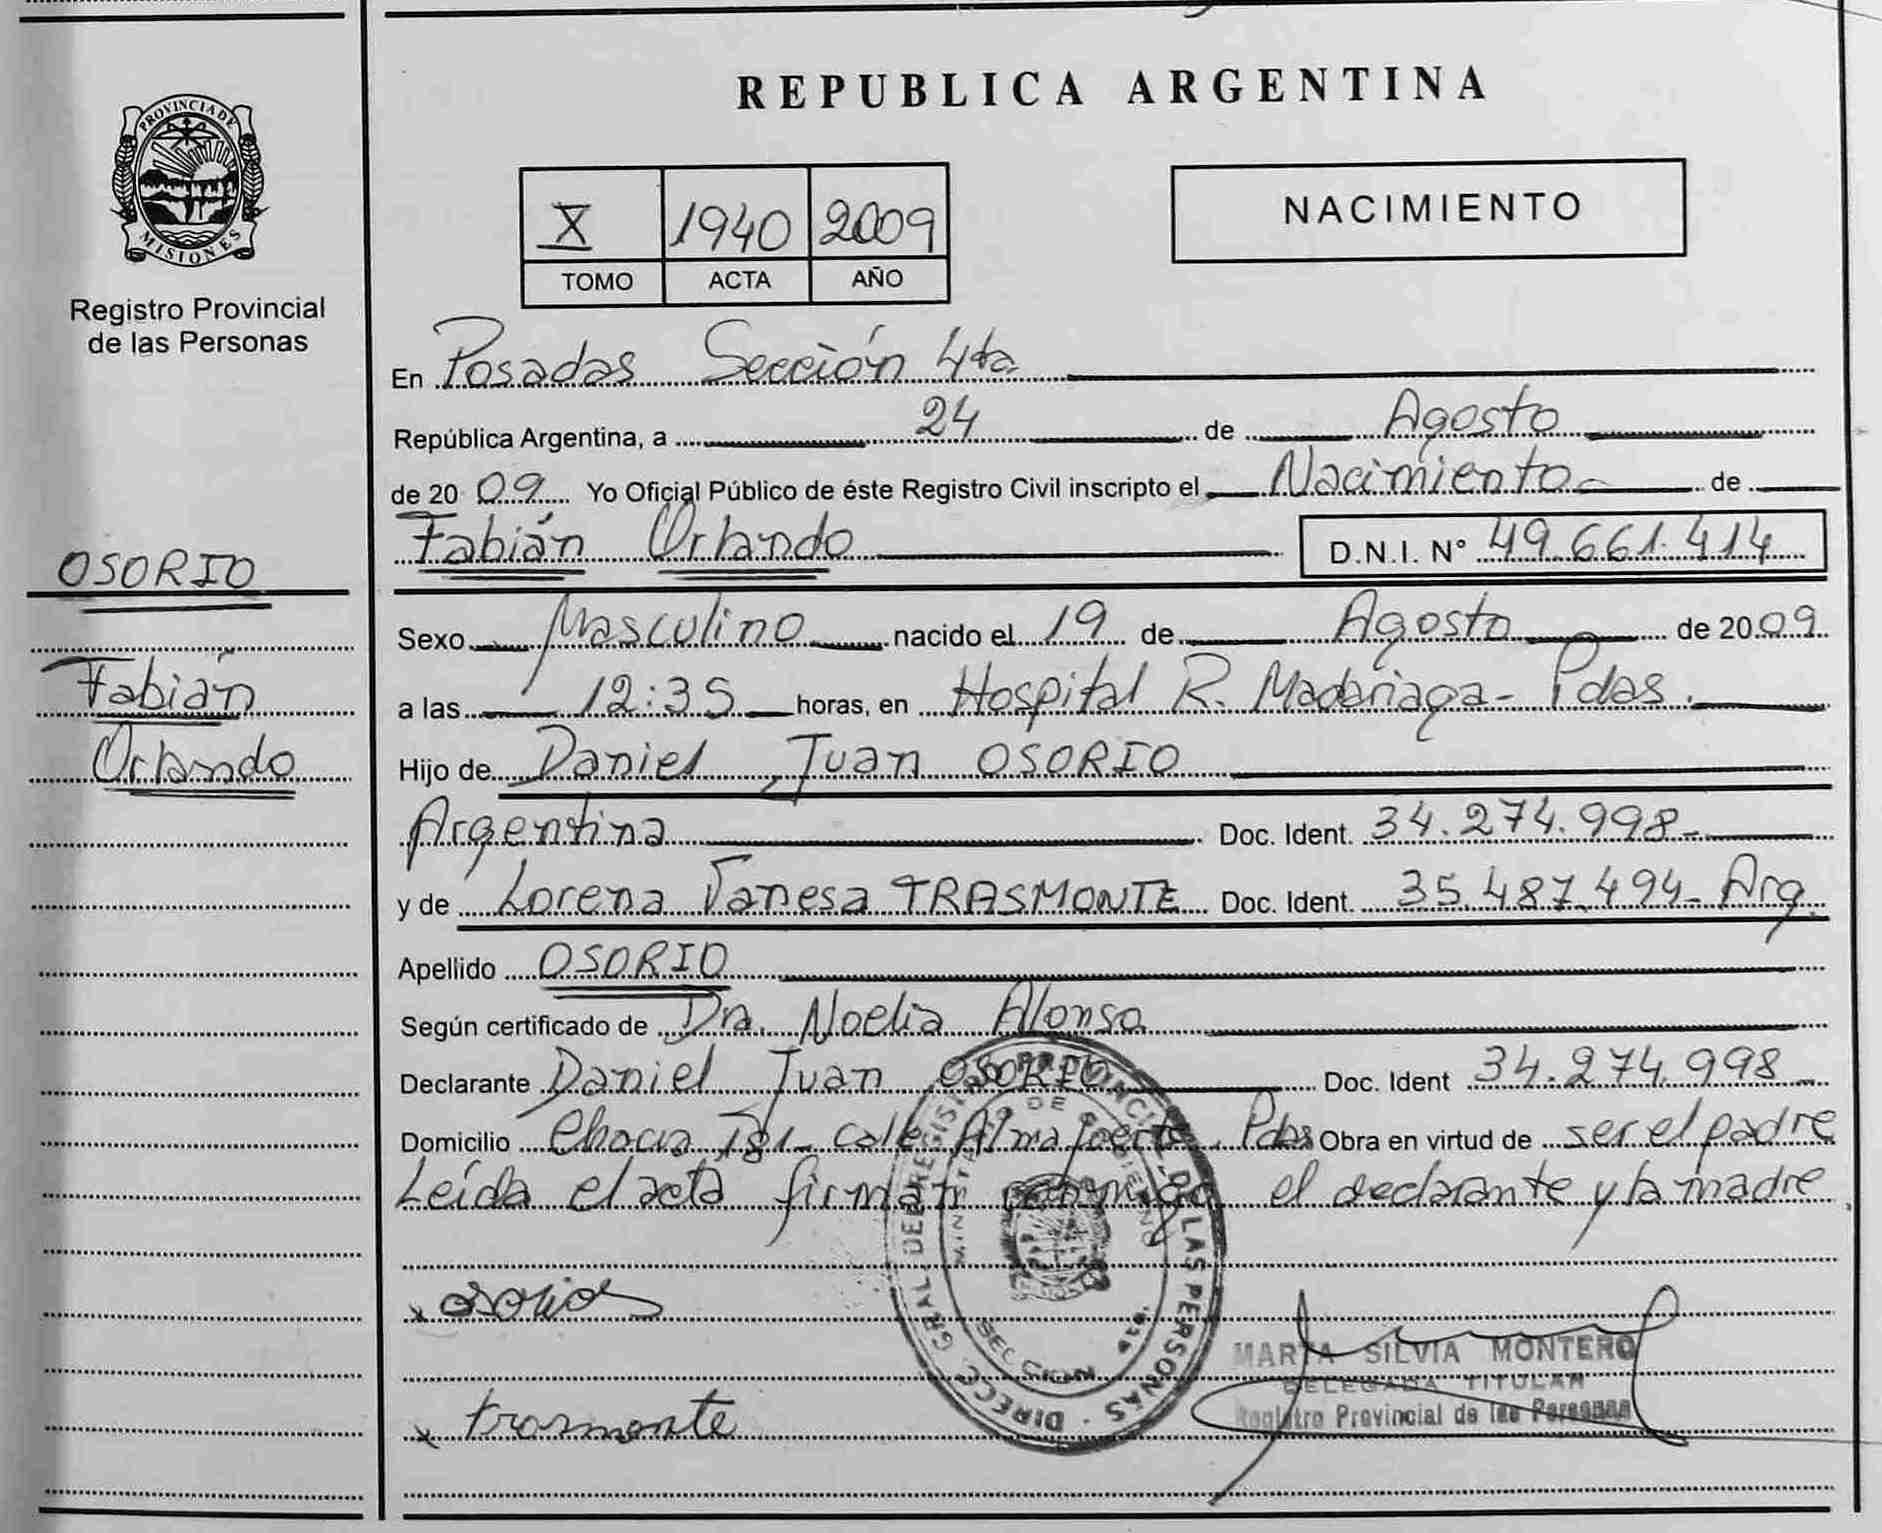 PROVINCIA DE
MISIONES
Registro Provincial
de las Personas
OSORIO
Fabián
Orlando
REPUBLICA ARGENTINA
X 1940 2009
TOMO ACTA AÑO
NACIMIENTO
En Posadas Sección 4ta
República Argentina, a 24 de Agosto
de 20 09 Yo Oficial Público de éste Registro Civil inscripto el Nacimiento de
Fabián Orlando D.N.I. N° 49.661.414
Sexo Masculino nacido el 19 de Agosto de 20 09
a las 12:35 horas, en Hospital R. Madariaga - Pdas.
Hijo de Daniel Juan OSORIO
Argentina Doc. Ident. 34.274.998-
y de Lorena Vanesa TRASMONTE Doc. Ident. 35.487.494- Arg.
Apellido OSORIO
Según certificado de Dra. Noelia Alonso
Declarante Daniel Juan OSORIO Doc. Ident 34.274.998-
Domicilio 181- calle Almafuerte, Pdas Obra en virtud de ser el padre
Leída el acta firman conmigo el declarante y la madre
DIRECC. GRAL. DE REGISTRO PROVINCIAL DE LAS PERSONAS
MINISTERIO DE GOBIERNO
SECCION 4ta
x osorio
x trasmonte
MARTA SILVIA MONTERO
DELEGADA TITULAR
Registro Provincial de las Personas